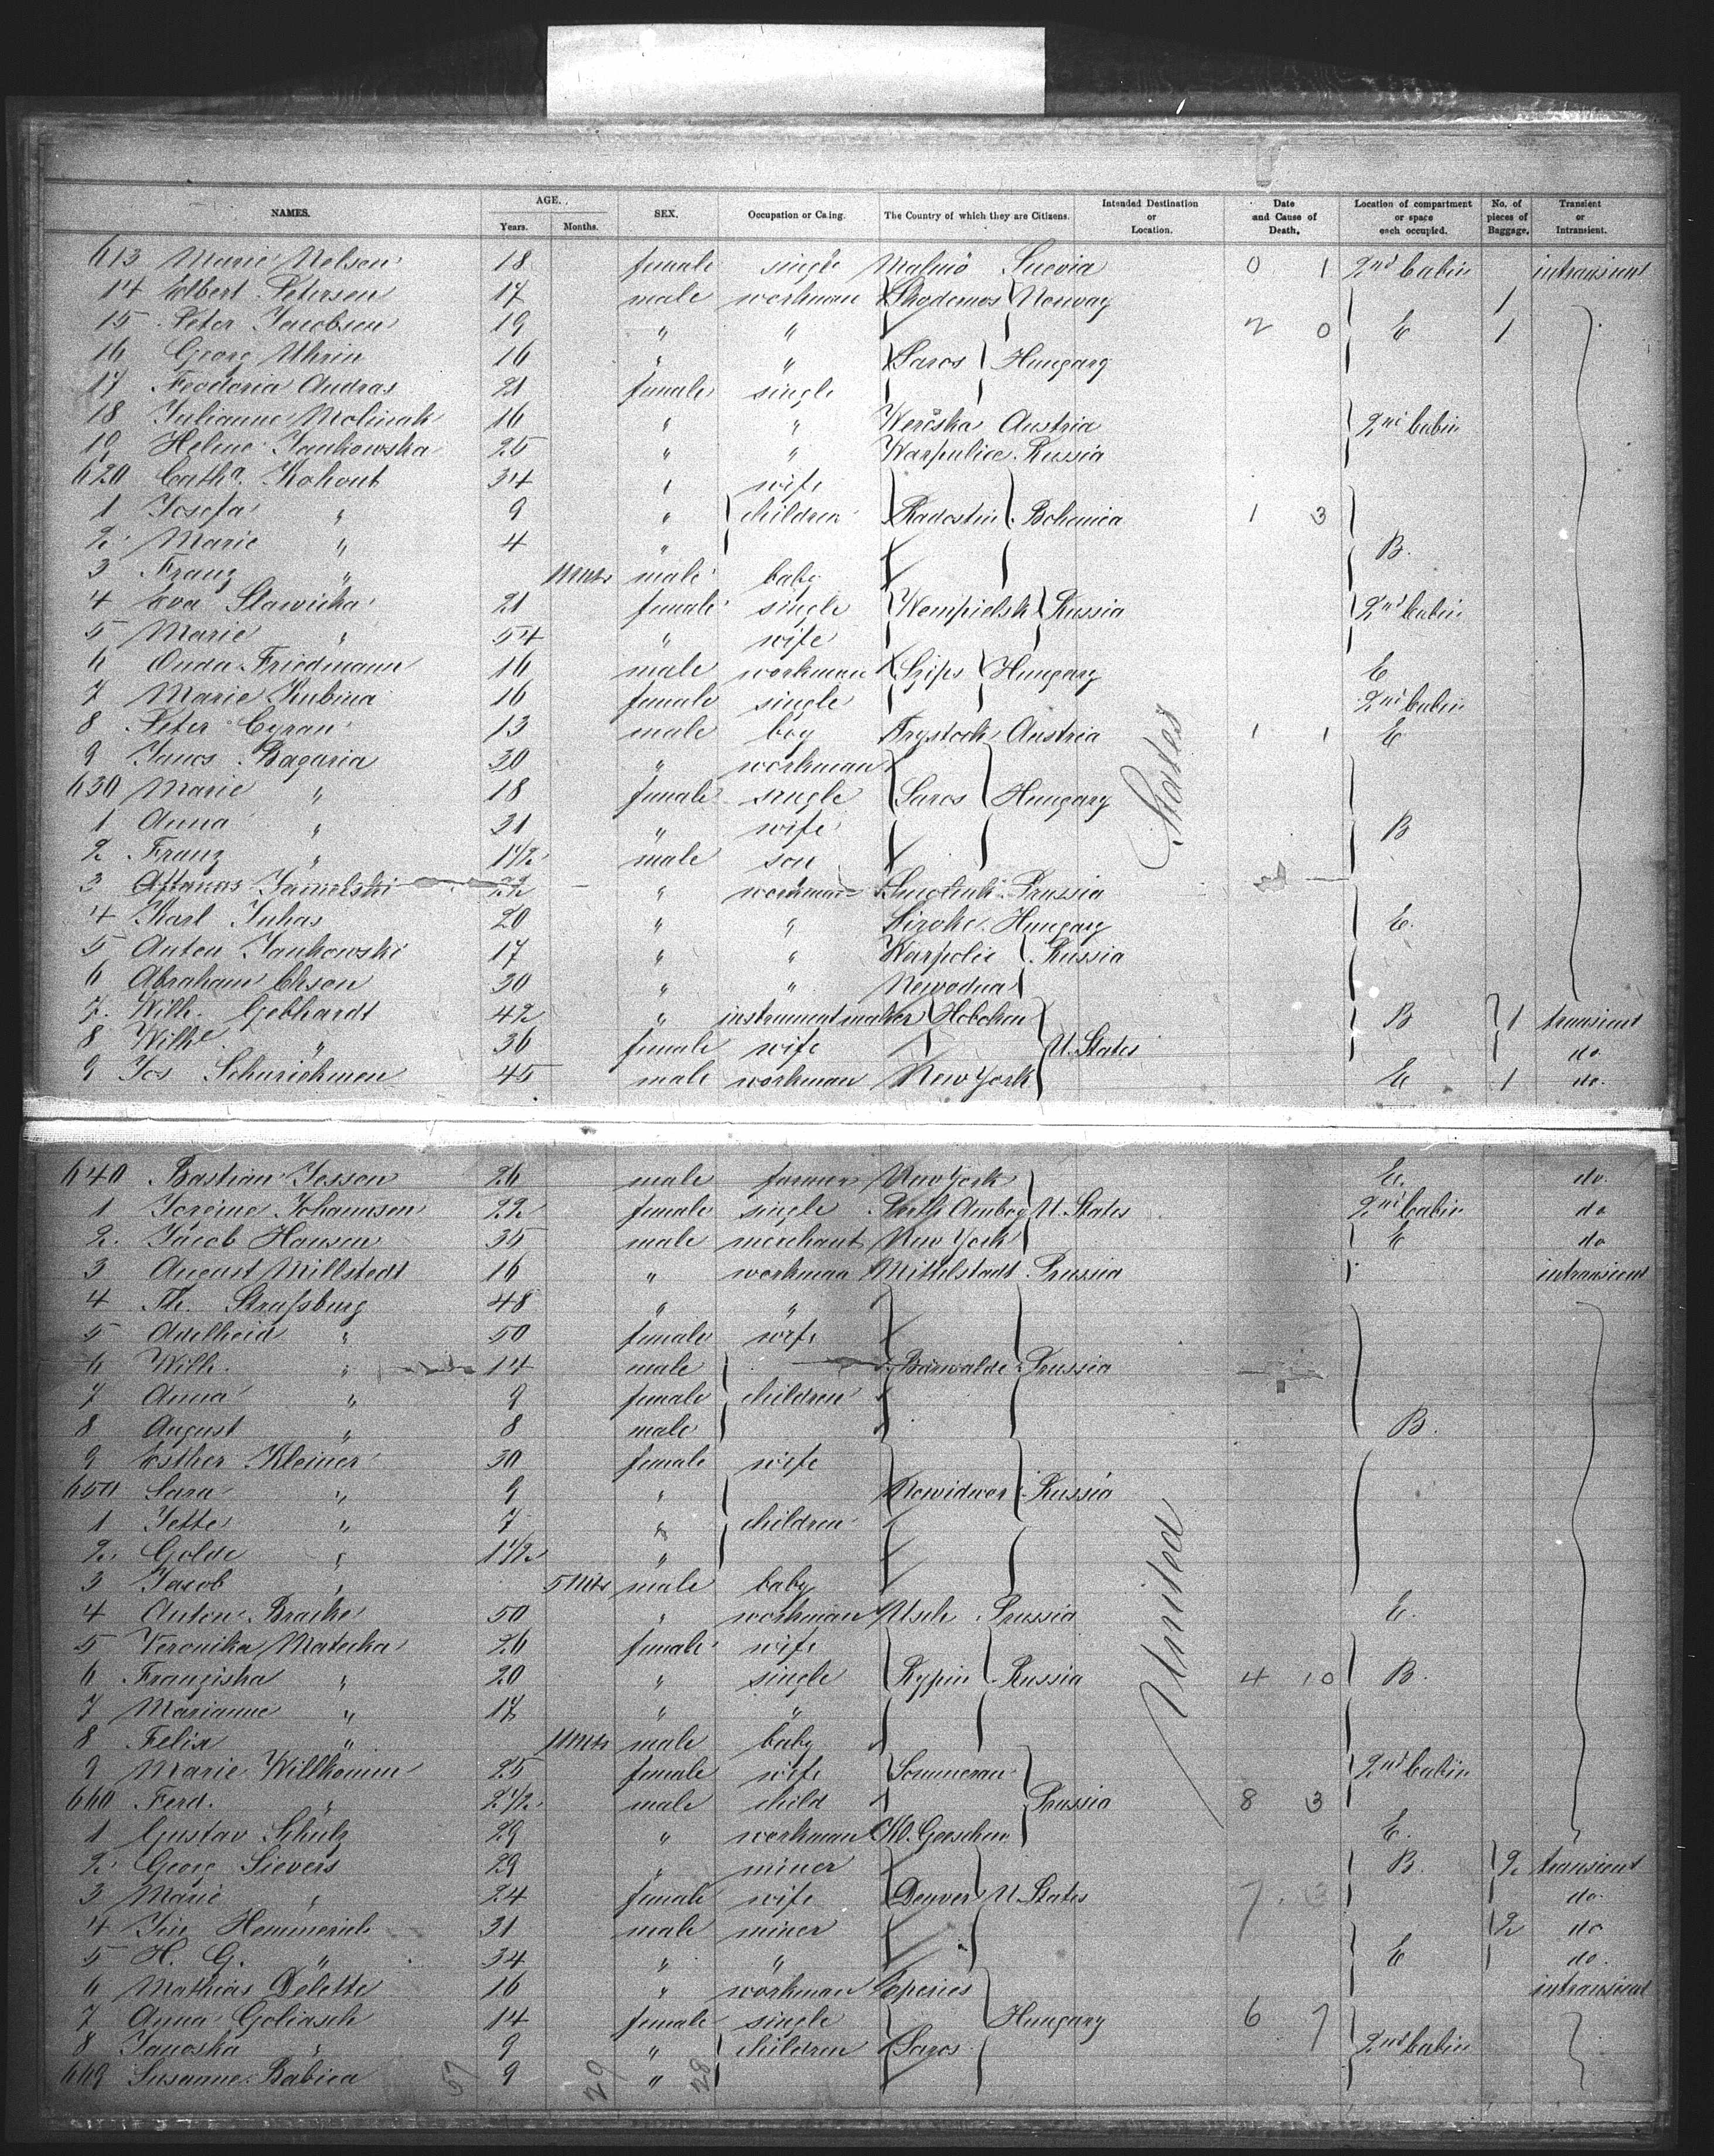 NAMES. AGE. Years. Months. SEX. Occupation or Caing. The Country of which they are Citizens. Intended Destination or Location. Date and Cause of Death, Location of compartment or space each occupied. No. of pieces of Baggage, Transient or Intransient.
613 Marie Nelson 18 female single Malmö Suevia 0 1 2nd Cabin intransient
14 Elbert Petersen 17 male workman Norway 1
15 Peter Jacobsen 19 " " 2 0 E 1
16 Georg Uhrin 16 " " Saros Hungary
17 Feodoria Andras 21 female single
18 Julianne Molinak 16 " " Austria 2nd Cabin
19 Helene Jankowska 25 " " Warpulice Russia
620 Catha. Kohout 34 " wife
1 Josefa " 9 " children Radostin Bohemia 1 3
2 Marie " 4 " B.
3 Franz " 11 Mts male baby
4 Eva Slawicka 21 female single Russia 2nd Cabin
5 Marie " 54 " wife
6 Friedmann 16 male workman Sips Hungary E
7 Marie Kubina 16 female single 2nd Cabin
8 Peter Cyran 13 male boy Frystock Austria 1 1 E
9 Janos Bagaria 30 " workman
630 Marie " 18 female single Saros Hungary
1 Anna " 31 " wife B
2 Franz " 1 1/2 male son
3 22 " workman Prussia
4 Karl Juhas 20 " " Siroke Hungary E.
5 Anton Jankowski 17 " " Warpolic Russia
6 Abraham 30 " " Newodna
7. Wilh. Gebhardt 42 " instrumentmaker Hoboken B 1 transient
8 Wilhe. " 36 female wife U. States do
9 Jos 45 male workman New York E 1 do.
States
640 Bastian Jesson 26 male farmer New York E. do.
1 Johannsen 22 female single Amboy U. States 2nd Cabin do
2. Jacob Hansen 35 male merchant New York E do
3 August Millstedt 16 " workman Mittelstadt Prussia intransient
4 Th. Straßburg 48 " "
5 Adelheid " 50 female wife
6 Wilh. " 14 male Bärwalde Prussia
7 Anna " 9 female children
8 August " 8 male B.
9 Esther Kleiner 30 female wife
650 Sara " 9 " Nowidwor Russia
1 Jette " 7 " children
2. Golde " 1 1/2 "
3 Jacob " 5 Mts male baby
4 Anton Bracke 50 " workman Usch Prussia E.
5 Veronika Matecka 26 female wife
6 Franziska " 20 " single Rypin Russia 4 10 B.
7 Marianne " 17 " "
8 Felix " 11 Mts male baby
9 Marie Willkomm 25 female wife Sommerau 2nd Cabin
660 Ferd. " 2 1/2 male child Prussia 8 3
1 Gustav Schulz 29 " workman Kl. Goeschen E.
2 Georg Sievers 29 " miner B. 2 transient
3 Marie " 24 female wife Denver U. States 7. 3 do.
4 Hemmerich 31 male miner 2 do
5 H. G. " 34 " " E do.
6 Mathias Delette 16 " workman Eperies intransient
7 Anna Goliasch 14 female single Hungary 6 7
8 Janoska " 9 " children Saros 2nd Cabin
669 Susanne Babica 9 "
United
57 29 28